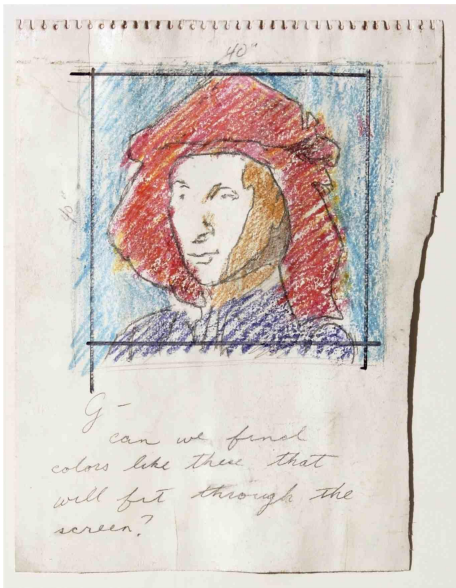 40"
G-
can we find
colors like these that
will fit through the
screen?